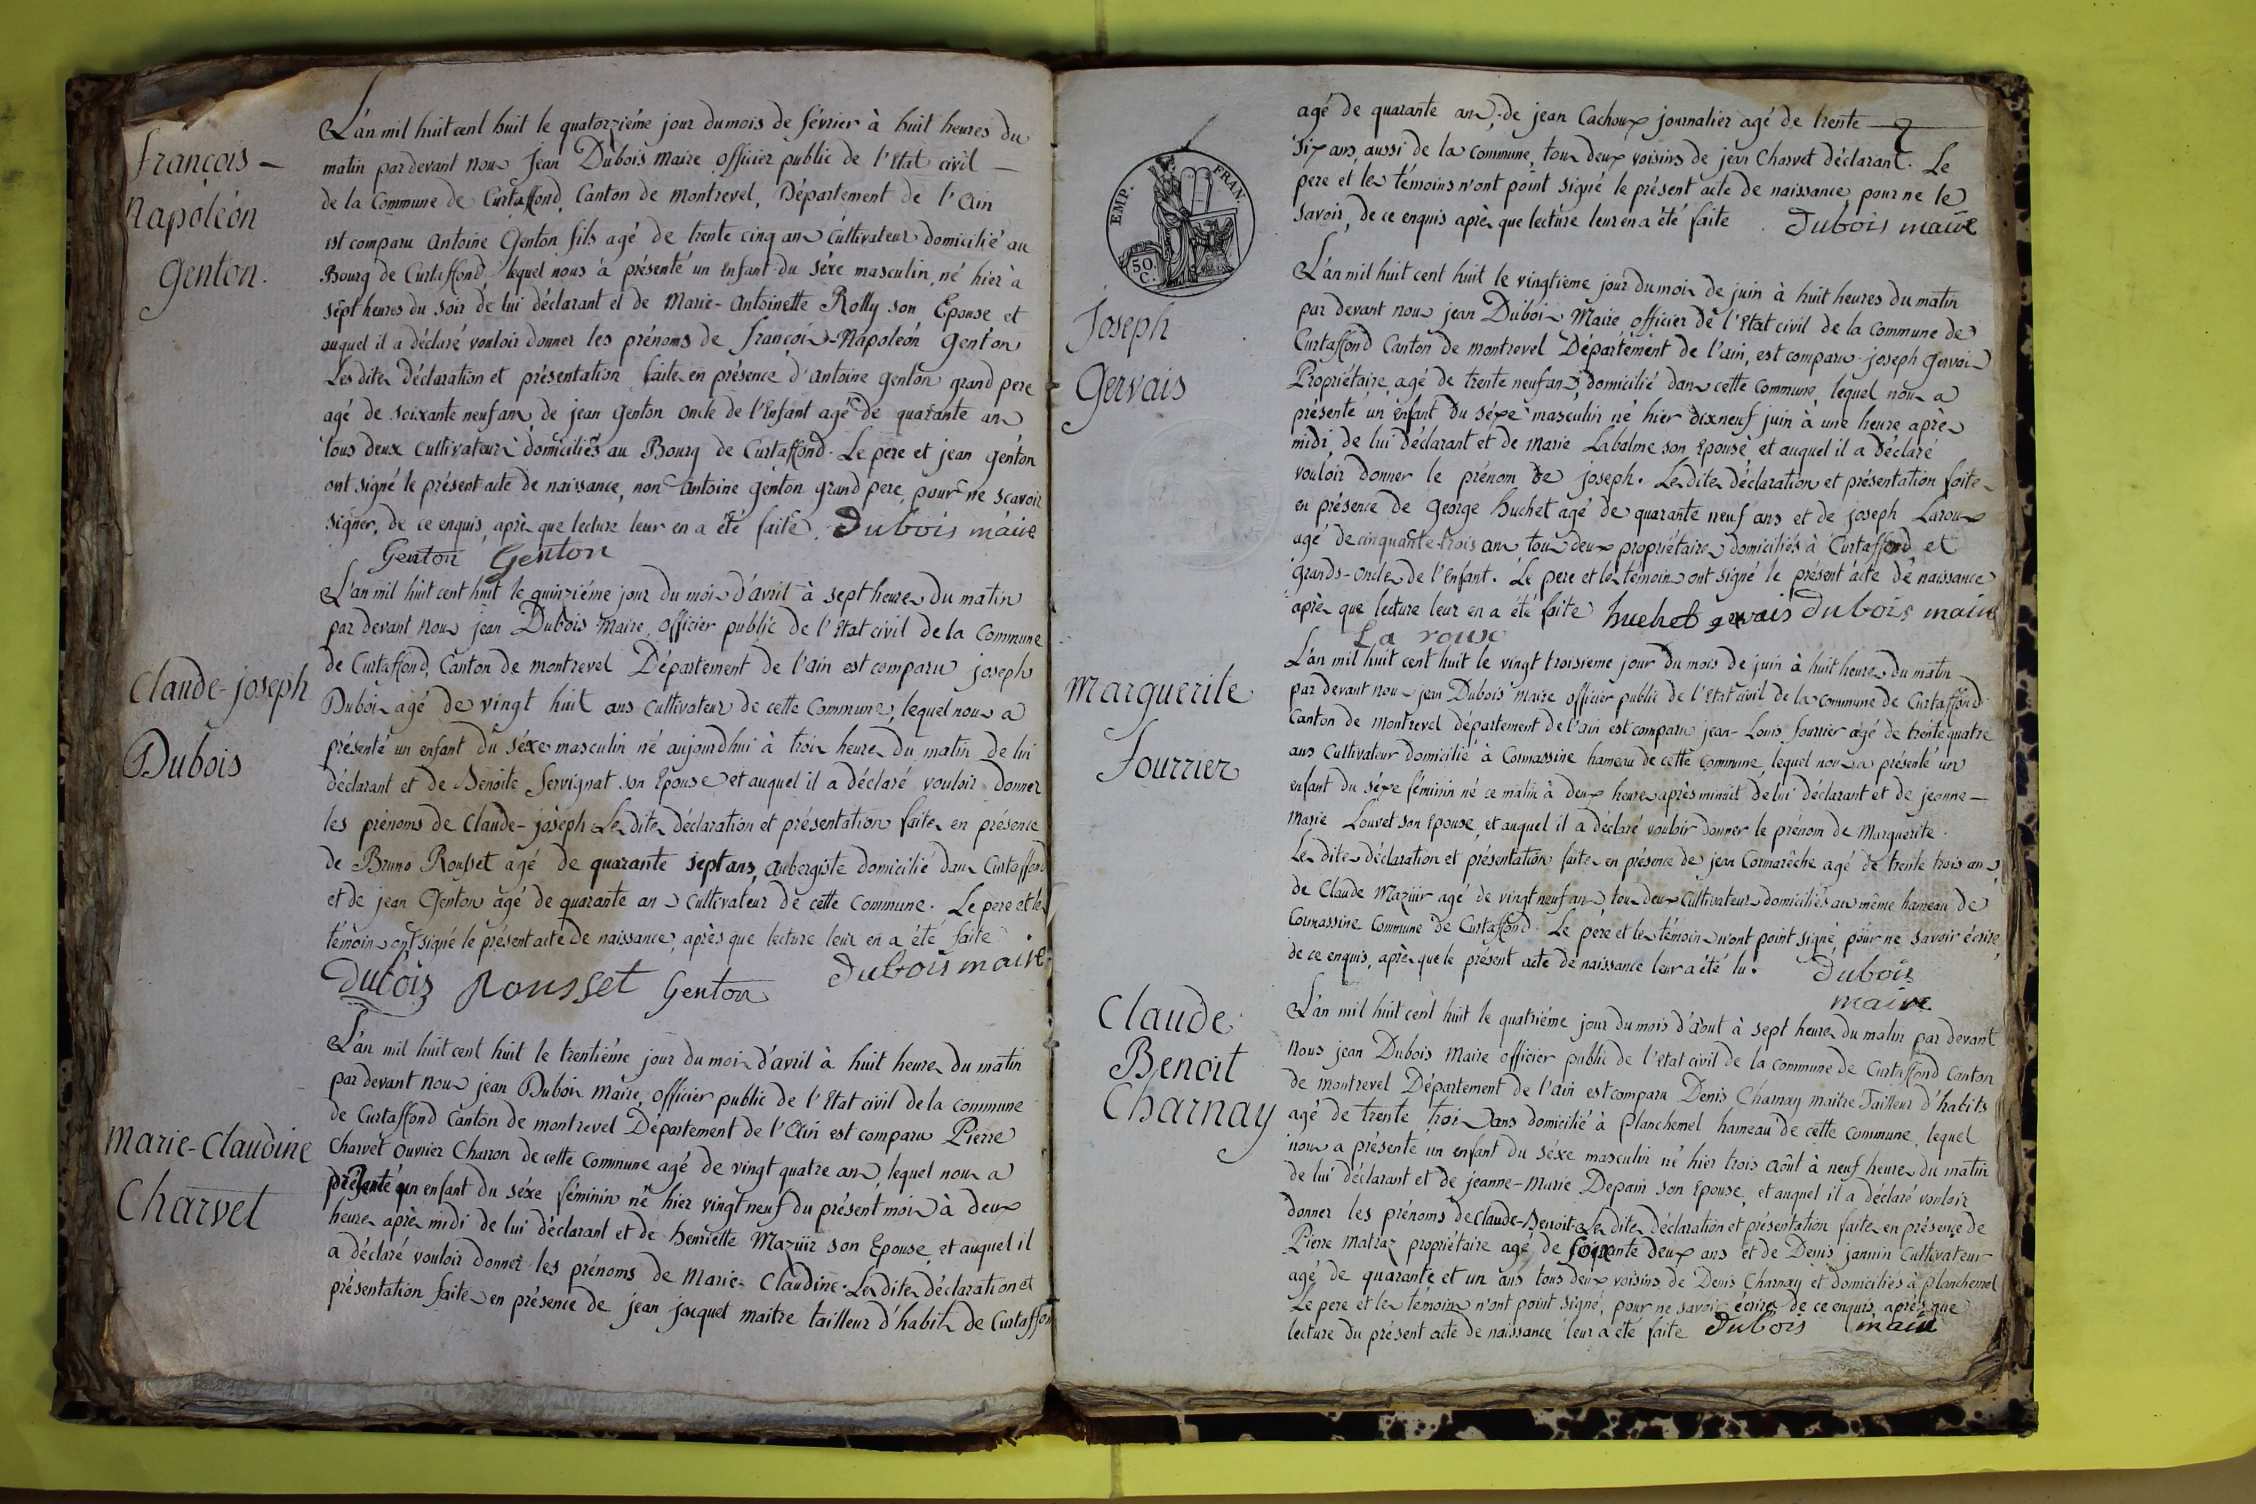 françois -
Napoléon
Genton.
L'an mil huit cent huit le quatorzième jour du mois de février à huit heures du
matin par devant nous Jean Dubois maire officier public de l'Etat civil —
de la Commune de Curtaffond, Canton de montrevel, Département de l'Ain
est comparu Antoine Genton fils agé de trente cinq ans Cultivateur domicilié au
Bourg de Curtaffond, lequel nous a présenté un Enfant du séxe masculin, né hier à
sept heures du soir de lui déclarant et de Marie-Antoinette Rolly son Epouse et
auquel il a déclaré vouloir donner les prénoms de françois-Napoléon Genton
Lesdites Déclaration et présentation faites en présence d'Antoine Genton grand pere
agé de soixante neuf ans, de jean Genton oncle de l'Enfant agé de quarante ans
tous deux Cultivateurs domiciliés au Bourg de Curtaffond. Le pere et jean Genton
ont signé le présent acte de naissance, non Antoine Genton grand pere, pour ne scavoir
signer, de ce enquis, après que lecture leur en a été faite. Dubois maire
Genton Genton
Claude-joseph
Dubois
L'an mil huit cent huit le quinzième jour du mois d'avril à sept heures du matin
par devant nous jean Dubois Maire, officier public de l'Etat civil de la Commune
de Curtaffond, Canton de montrevel Département de l'ain est comparu joseph
Dubois agé de vingt huit ans Cultivateur de cette Commune, lequel nous a
présenté un enfant du séxe masculin né aujourdhui à trois heures du matin de lui
déclarant et de Benoite Servignat son Epouse et auquel il a déclaré vouloir donner
les prénoms de Claude-joseph. Lesdites déclaration et présentation faites en présence
de Bruno Rousset agé de quarante sept ans, Aubergiste domicilié dans Curtaffond
et de jean Genton agé de quarante ans Cultivateur de cette Commune. Le pere et les
témoins ont signé le présent acte de naissance, après que lecture leur en a été faite.
Dubois Rousset Genton Dubois maire
Marie-Claudine
Charvet
L'an mil huit cent huit le trentième jour du mois d'avril à huit heures du matin
par devant nous jean Dubois Maire, officier public de l'Etat civil de la commune
de Curtaffond Canton de montrevel Département de l'Ain est comparu Pierre
Charvet ouvrier Charron de cette Commune agé de vingt quatre ans, lequel nous a
présenté un enfant du séxe féminin né hier vingt neuf du présent mois à deux
heures après midi de lui déclarant et de henriette Mazüir son Epouse et auquel il
a déclaré vouloir donner les prénoms de Marie-Claudine. Lesdites déclaration et
présentation faites en présence de jean jacquet maitre tailleur d'habits de Curtaffond
agé de quarante ans, de jean Cachoux journalier agé de trente
six ans, aussi de la commune, tous deux voisins de jean Charvet déclarant. Le
pere et les témoins n'ont point signé le présent acte de naissance pour ne le
savoir, de ce enquis après que lecture leur en a été faite Dubois maire
EMP. FRAN.
50.
C.
Joseph
Gervais
L'an mil huit cent huit le vingtième jour du mois de juin à huit heures du matin
par devant nous jean Dubois Maire, officier de l'Etat civil de la Commune de
Curtaffond Canton de montrevel Département de l'ain, est comparu joseph gervais
Propriétaire, agé de trente neuf ans, domicilié dans cette Commune, lequel nous a
présenté un enfant du séxe masculin né hier dix neuf juin à une heure après
midi, de lui déclarant et de Marie Labalme son Epouse et auquel il a déclaré
vouloir donner le prénom de joseph. Lesdites déclaration et présentation faites
en présence de George huchet agé de quarante neuf ans et de joseph Laroux
agé de cinquante-trois ans tous deux propriétaires domiciliés à Curtaffond et
Grands-oncles de l'enfant. Le pere et les témoins ont signé le présent acte de naissance
après que lecture leur en a été faite huchet gervais Dubois maire
La roux
Marguerite
Fourrier
L'an mil huit cent huit le vingt troisieme jour du mois de juin à huit heures du matin
par devant nous jean Dubois Maire officier public de l'Etat civil de la commune de Curtaffond
Canton de montrevel département de l'ain est comparu jean-Louis fourrier agé de trente quatre
ans cultivateur domicilié à Connassine hameau de cette commune, lequel nous a présenté un
enfant du séxe féminin né ce matin à deux heures après minuit de lui déclarant et de jeanne —
Marie Louvet son Epouse, et auquel il a déclaré vouloir donner le prénom de Marguerite.
Lesdites déclaration et présentation faites en présence de jean Cormarèche agé de trente trois ans,
de Claude Mazüir agé de vingt neuf ans, tous deux Cultivateurs domiciliés au même hameau de
Connassine Commune de Curtaffond. Le pere et les témoins n'ont point signé, pour ne savoir écrire,
de ce enquis, après que le présent acte de naissance leur a été lu. Dubois
maire
Claude
Benoit
Charnay
L'an mil huit cent huit le quatrième jour du mois d'aout à sept heures du matin par devant
Nous jean Dubois Maire officier public de l'etat civil de la commune de Curtaffond Canton
de montrevel Département de l'ain est comparu Denis Charnay maitre Tailleur d'habits
agé de trente trois ans domicilié à Planchemel hameau de cette commune, lequel
nous a présenté un enfant du séxe masculin né hier trois Août à neuf heures du matin
de lui déclarant et de jeanne-Marie Depain son Epouse, et auquel il a déclaré vouloir
donner les prénoms de Claude-Benoit. Lesdites déclaration et présentation faites en présence de
Pierre Matraz propriétaire agé de soixante deux ans et de Denis jannin Cultivateur
agé de quarante et un ans tous deux voisins de Denis Charnay et domiciliés à planchemel
Le pere et les témoins n'ont point signé, pour ne savoir écrire de ce enquis, après que
lecture du présent acte de naissance leur a été faite Dubois maire